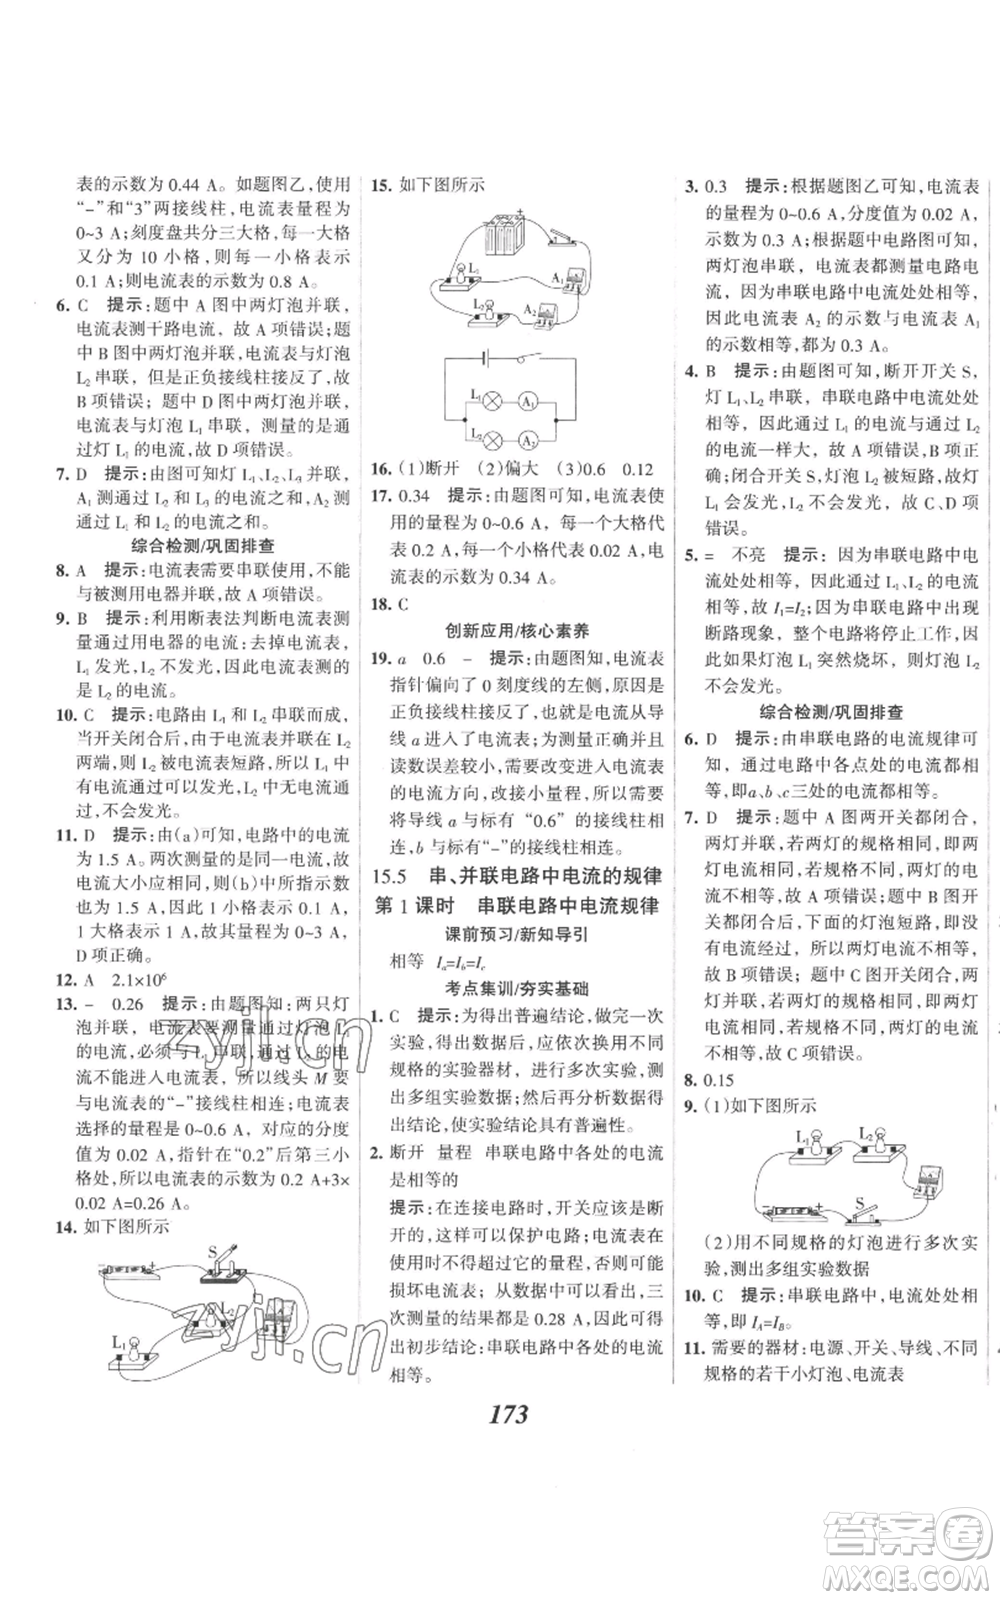 表的示数为 0.44 A。如题图乙,使用
“-”和“3”两接线柱,电流表量程为
0~3 A;刻度盘共分三大格,每一大格
又分为 10 小格,则每一小格表示
0.1 A;则电流表的示数为 0.8 A。
6. C 提示:题中 A 图中两灯泡并联,
电流表测干路电流,故 A 项错误;题
中 B 图中两灯泡并联,电流表与灯泡
L₂ 串联,但是正负接线柱接反了,故
B 项错误;题中 D 图中两灯泡并联,
电流表与灯泡 L₁ 串联,测量的是通
过灯 L₁ 的电流,故 D 项错误。
7. D 提示:由图可知灯 L₁、L₂、L₃ 并联,
A₁ 测通过 L₂ 和 L₃ 的电流之和,A₂ 测
通过 L₁ 和 L₂ 的电流之和。
综合检测/巩固排查
8. A 提示:电流表需要串联使用,不能
与被测用电器并联,故 A 项错误。
9. B 提示:利用断表法判断电流表测
量通过用电器的电流:去掉电流表,
L₁ 发光,L₂ 不发光,因此电流表测的
是 L₂ 的电流。
10. C 提示:电路由 L₁ 和 L₂ 串联而成,
当开关闭合后,由于电流表并联在 L₂
两端,则 L₂ 被电流表短路,所以 L₂
中有电流可以发光,L₂ 中无电流通
过,不会发光。
11. D 提示:由(a)可知,电路中的电流
为 1.5 A。两次测量的是同一电流,
电流大小应相等,则(b)中所指示的
也为 1.5 A,共指示 5 大格,0.3 A/格,
1 大格表示 0.1 A,故量程为 0~3 A,故
D 项正确。
12. A 2.1×10⁶
13. - 0.26 提示:由题图知:两只灯
泡并联,电流表要测量通过灯泡 L₁
的电流,必须与 L₁ 串联,且通过 L₂ 的
电流不能进入电流表,所以线头 M 要
与电流表的“-”接线柱相连;电流表
选择的量程是 0~0.6 A,对应的分度
值为 0.02 A,指针在“0.2”后第三小
格处,所以电流表的示数为 0.2 A+3×
0.02 A=0.26 A。
14. 如下图所示
S
L₂
L₁
15. 如下图所示
L₁
A₁
L₂
A₂
L₁ A₁
L₂ A₂
16. (1)断开 (2)偏大 (3)0.6 0.12
17. 0.34 提示:由题图可知,电流表使
用的量程为 0~0.6 A,每一个大格代
表 0.2 A,每一个小格代表 0.02 A,电
流表的示数为 0.34 A。
18. C
创新应用/核心素养
19. a 0.6 - 提示:由题图知,电流表
指针偏向了 0 刻度线的左侧,原因是
正负接线柱接反了,也就是电流从导
线 a 进入了电流表;为使测量正确并且
读数误差较小,需要改变进入电流表的
电流方向,改接小量程,所以需要将
导线 a 与标有“0.6”的接线柱相
连,b 与标有“-”的接线柱相连。
15.5 串、并联电路中电流的规律
第 1 课时 串联电路中电流规律
课前预习/新知导引
相等 Iₐ=I_b=I_c
考点集训/夯实基础
1. C 提示:为得出普遍结论,做完一次
实验,得出数据后,应依次换用不同
规格的实验器材,进行多次实验,测
出多组实验数据,然后分析数据得
出结论,使实验结论具有普遍性。
2. 断开 量程 串联电路中各处的电流
是相等的
提示:在连接电路时,开关应该是断
开的,这样可以保护电路;电流表在
使用时不得超过它的量程,否则可能
损坏电流表;从实验数据可以看出,三
次测量的结果都是 0.28 A,因此可以得
出初步结论:串联电路中各处的电流
相等。
3. 0.3 提示:根据题图乙可知,电流表
的量程为 0~0.6 A,分度值为 0.02 A,
示数为 0.3 A;根据题中电路图可知,
两灯泡串联,电流表都测量电路电
流,因为串联电路中电流处处相等,
因此电流表 A₂ 的示数与电流表 A₁
的示数相等,都为 0.3 A。
4. B 提示:由题图可知,断开开关 S,
灯 L₁、L₂ 串联,串联电路中电流处处
相等,因此通过 L₁ 的电流与通过 L₂
的电流一样大,故 A 项错误,B 项正
确;闭合开关 S,灯泡 L₂ 被短路,故灯
L₁ 会发光,L₂ 不会发光,故 C、D 项
错误。
5. = 不亮 提示:因为串联电路中电
流处处相等,所以通过 L₁、L₂ 的电流
相等,故 I₁=I₂;因为串联电路中出现
断路现象,整个电路将停止工作,因
此如果灯泡 L₁ 突然烧坏,则灯泡 L₂
不会发光。
综合检测/巩固排查
6. D 提示:由串联电路的电流规律可
知,通过电路中各点处的电流都相
等,即a、b、c三处的电流都相等。
7. D 提示:题中 A 图两开关都闭合,
两灯并联,如果两灯的规格相同,则两
灯电流相等,故 A 项错误;题中 B 图开
关都闭合后,下面的灯泡短路,所以没
有电流经过,所以两灯电流不相等,故
B 项错误;题中 C 图开关都闭合后,两
灯并联,若两灯的规格不同,两灯的电流
不相等,若两灯的规格相同,则两灯的电流
相等,故 C 项错误。
8. 0.15
9. (1)如下图所示
L₁
L₂
S
(2)用不同规格的灯泡进行多次实
验,测出多组实验数据
10. C 提示:串联电路中,电流处处相
等,即 I_A=I_B。
11. 需要的器材:电源、开关、导线、不同
规格的若干小灯泡、电流表
173
zyjl.cn
zyjl.cn
答案卷
MXQE.COM